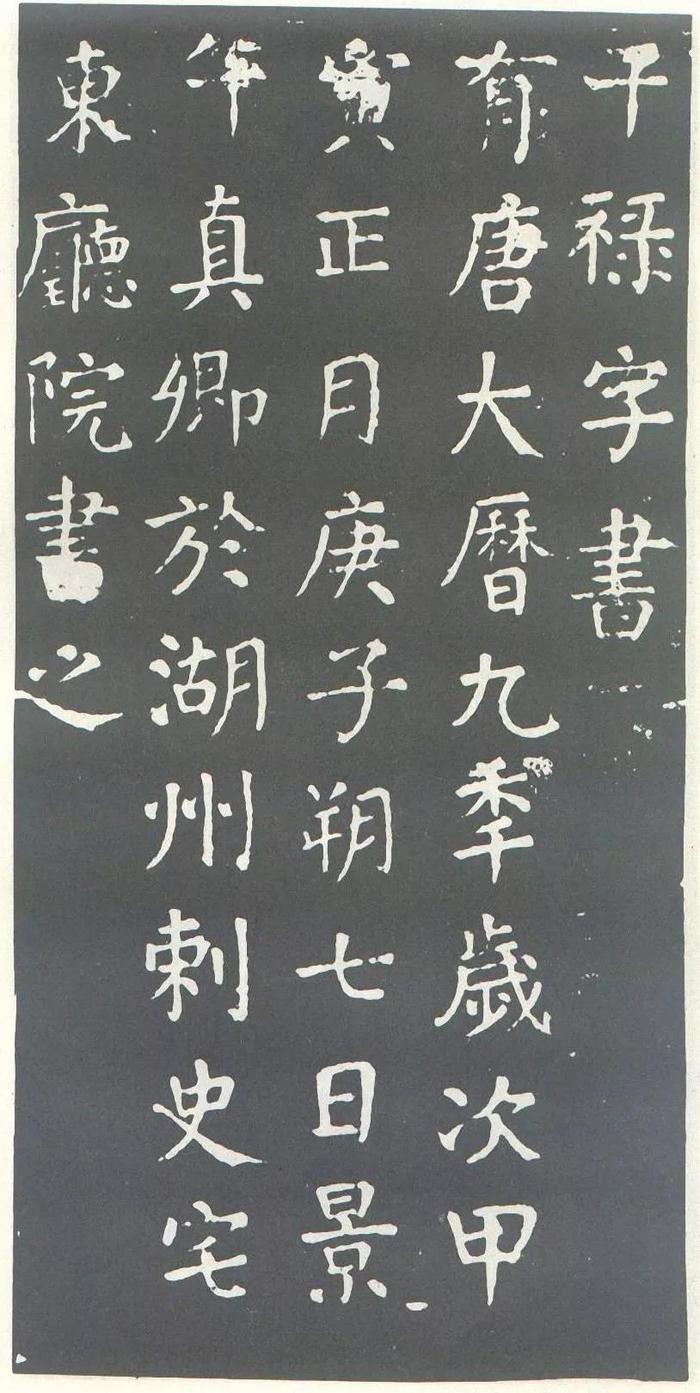 干禄字書
有唐大曆九秊歲次甲
寅正月庚子朔七日景
午真卿於湖州刺史宅
東廳院書之